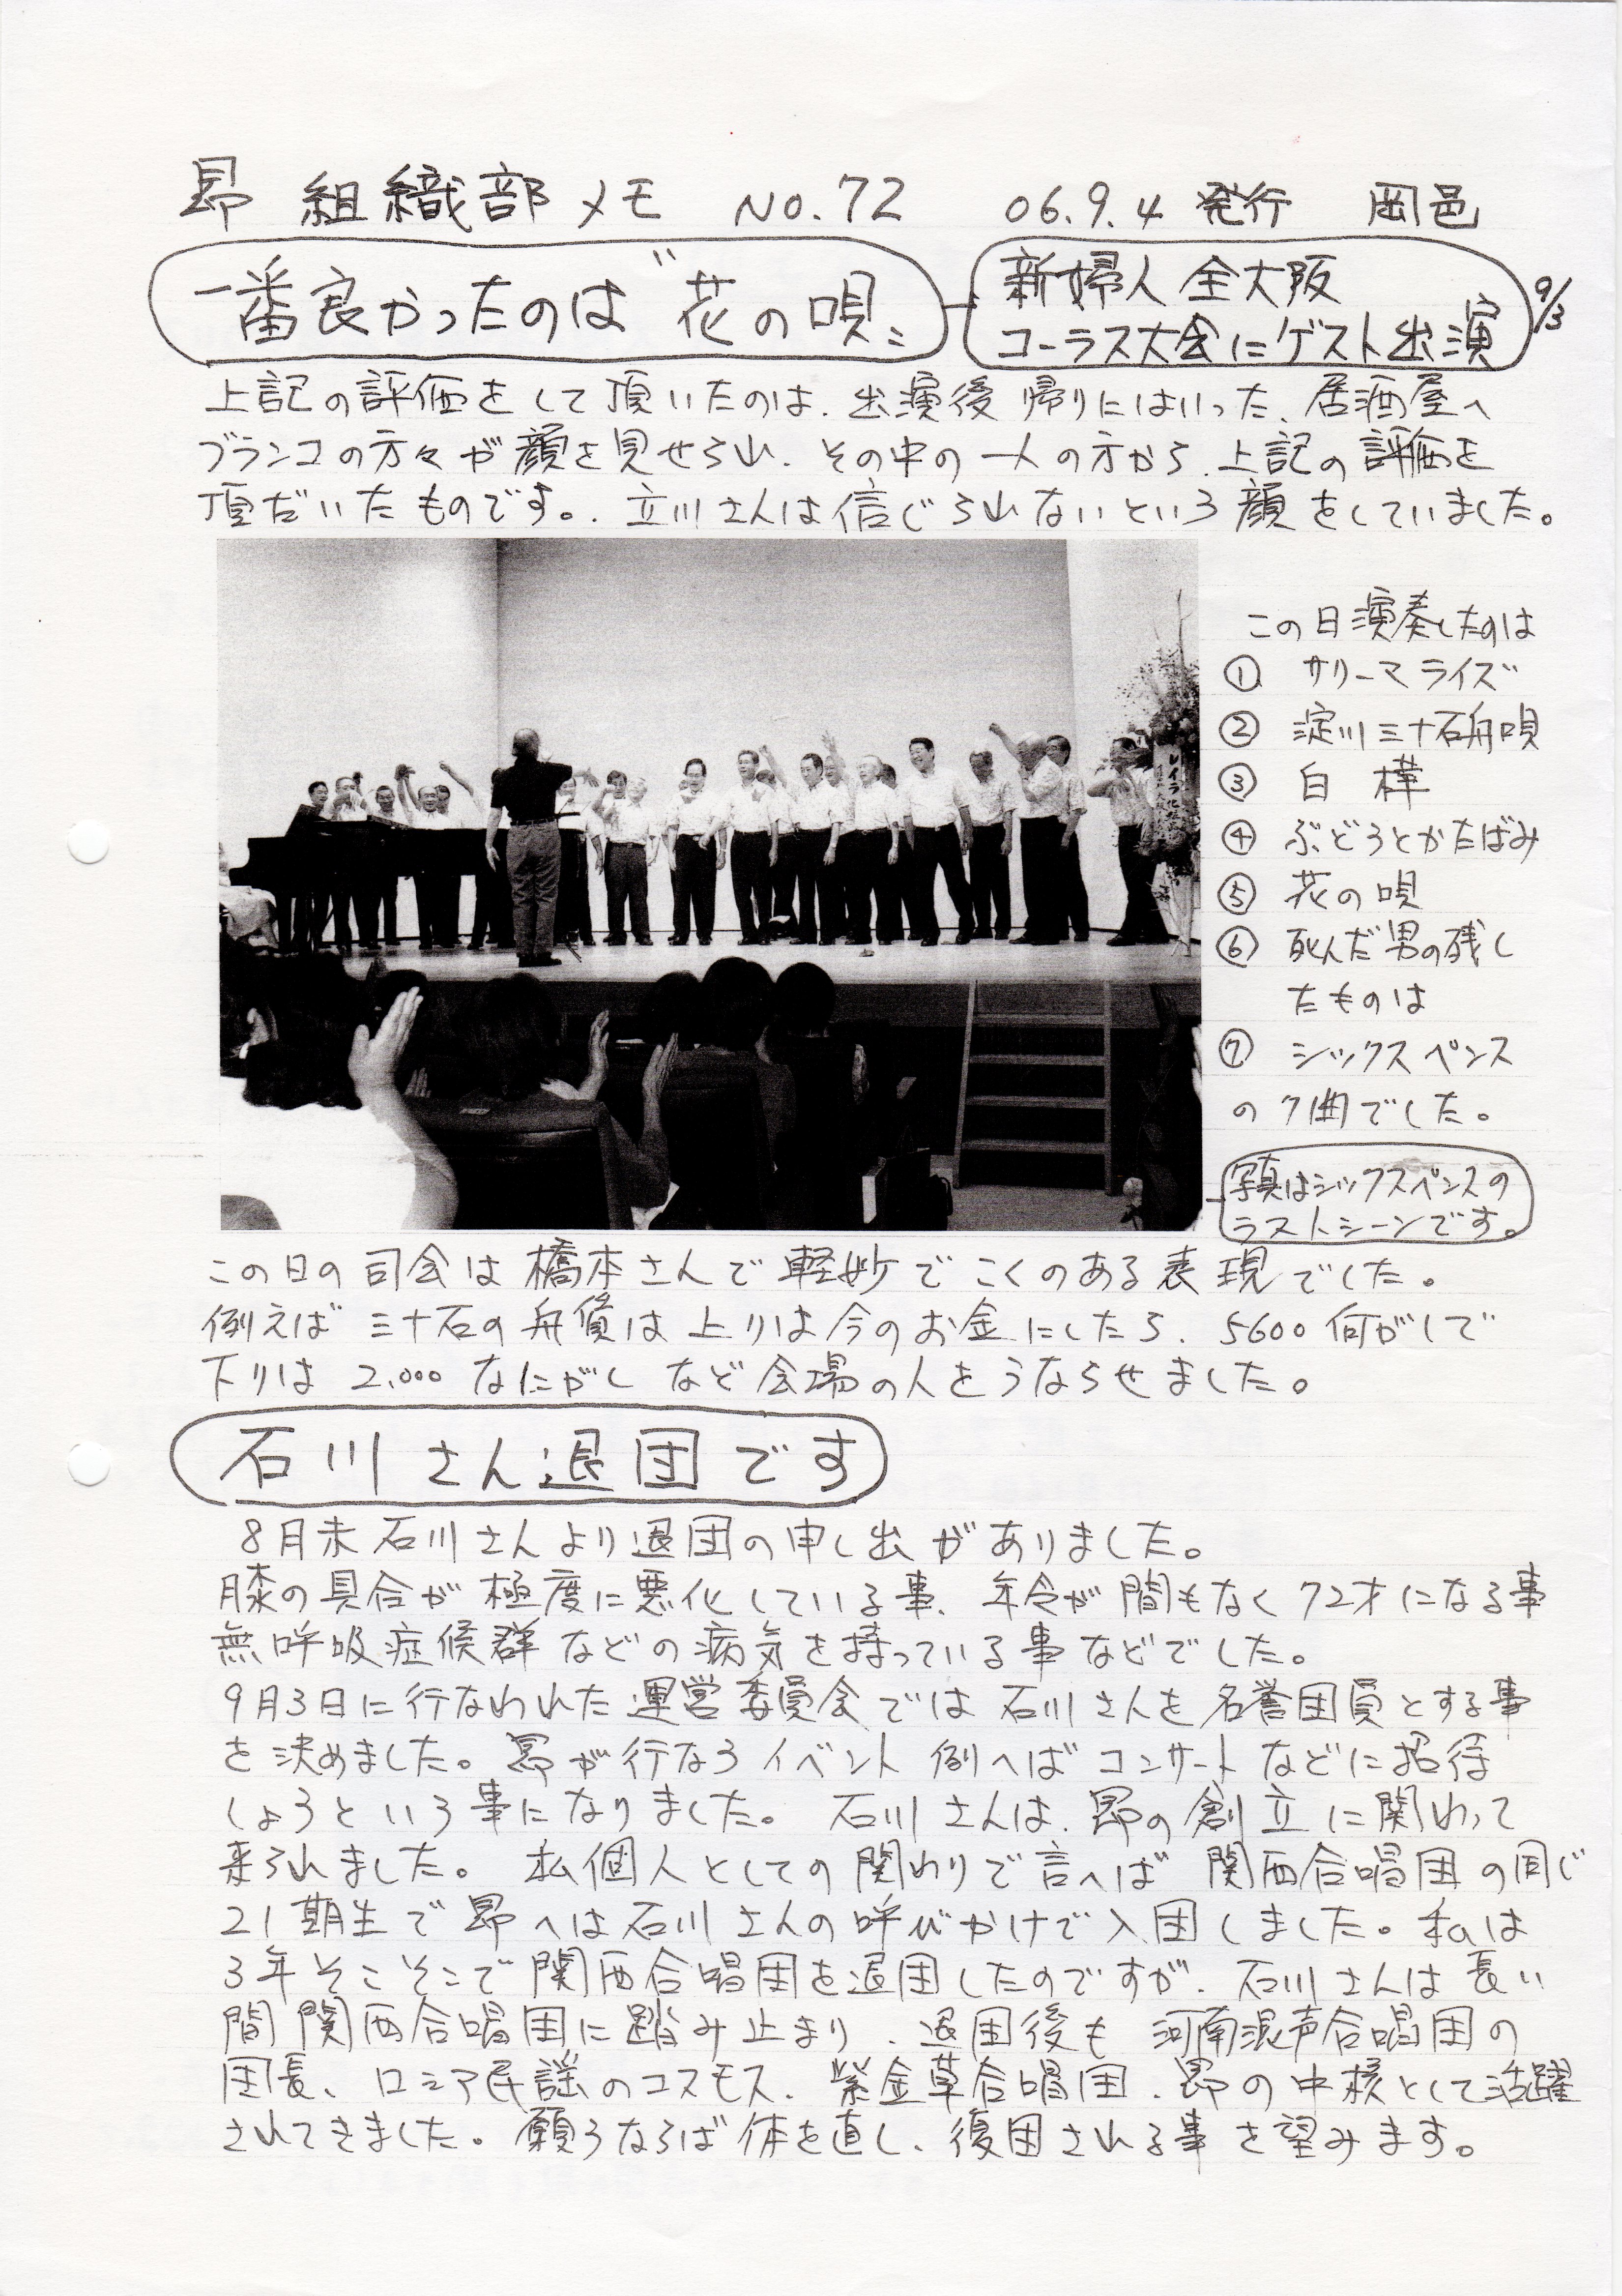 昴 組織部メモ No.72 06.9.4 発行 岡邑
一番良かったのは"花の唄"
新婦人全大阪
コーラス大会にゲスト出演
9/3
上記の評価をして頂いたのは、出演後帰りにはいった、居酒屋へ
ブランコの方々が顔を見せられ、その中の一人の方から、上記の評価を
頂だいたものです。、立川さんは信じられないという顔をしていました。
この日演奏したのは
① サリーマライズ
② 淀川三十石舟唄
③ 白樺
④ ぶどうとかたばみ
⑤ 花の唄
⑥ 死んだ男の残し
たものは
⑦ シックスペンス
の7曲でした。
写真はシックスペンスの
ラストシーンです。
レイラ化
この日の司会は橋本さんで軽妙でこくのある表現でした。
例えば三十石の舟賃は上りは今のお金にしたら、5600何がしで
下りは2,000なにがしなど会場の人をうならせました。
石川さん退団です
8月末石川さんより退団の申し出がありました。
膝の具合が極度に悪化している事、年令が間もなく72才になる事
無呼吸症候群などの病気を持っている事などでした。
9月3日に行なわれた運営委員会では石川さんを名誉団員とする事
を決めました。昴が行なうイベント例へばコンサートなどに招待
しようという事になりました。 石川さんは、昴の創立に関わって
来られました。 私個人としての関わりで言へば関西合唱団の同じ
21期生で昴へは石川さんの呼びかけで入団しました。私は
3年そこそこで関西合唱団を退団したのですが、石川さんは長い
間関西合唱団に踏み止まり、退団後も河南混声合唱団の
団長、ロシア民謡のコスモス、紫金草合唱団、昴の中核として活躍
されてきました。願うならば体を直し、復団される事を望みます。